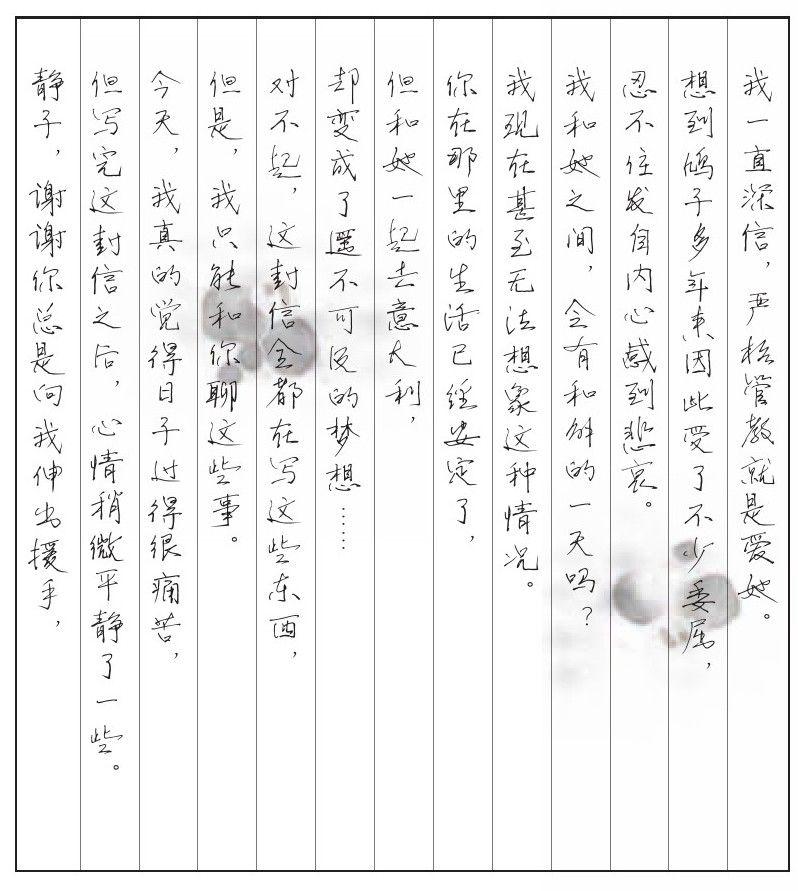 我一直深信，严格管教就是爱她。
想到鸠子多年来因此受了不少委屈，
忍不住发自内心感到悲哀。
我和她之间，会有和解的一天吗？
我现在甚至无法想象这种情况。
你在那里的生活已经安定了，
但和她一起去意大利，
却变成了遥不可及的梦想……
对不起，这封信全都在写这些东西，
但是，我只能和你聊这些事。
今天，我真的觉得日子过得很痛苦，
但写完这封信之后，心情稍微平静了一些。
静子，谢谢你总是向我伸出援手，